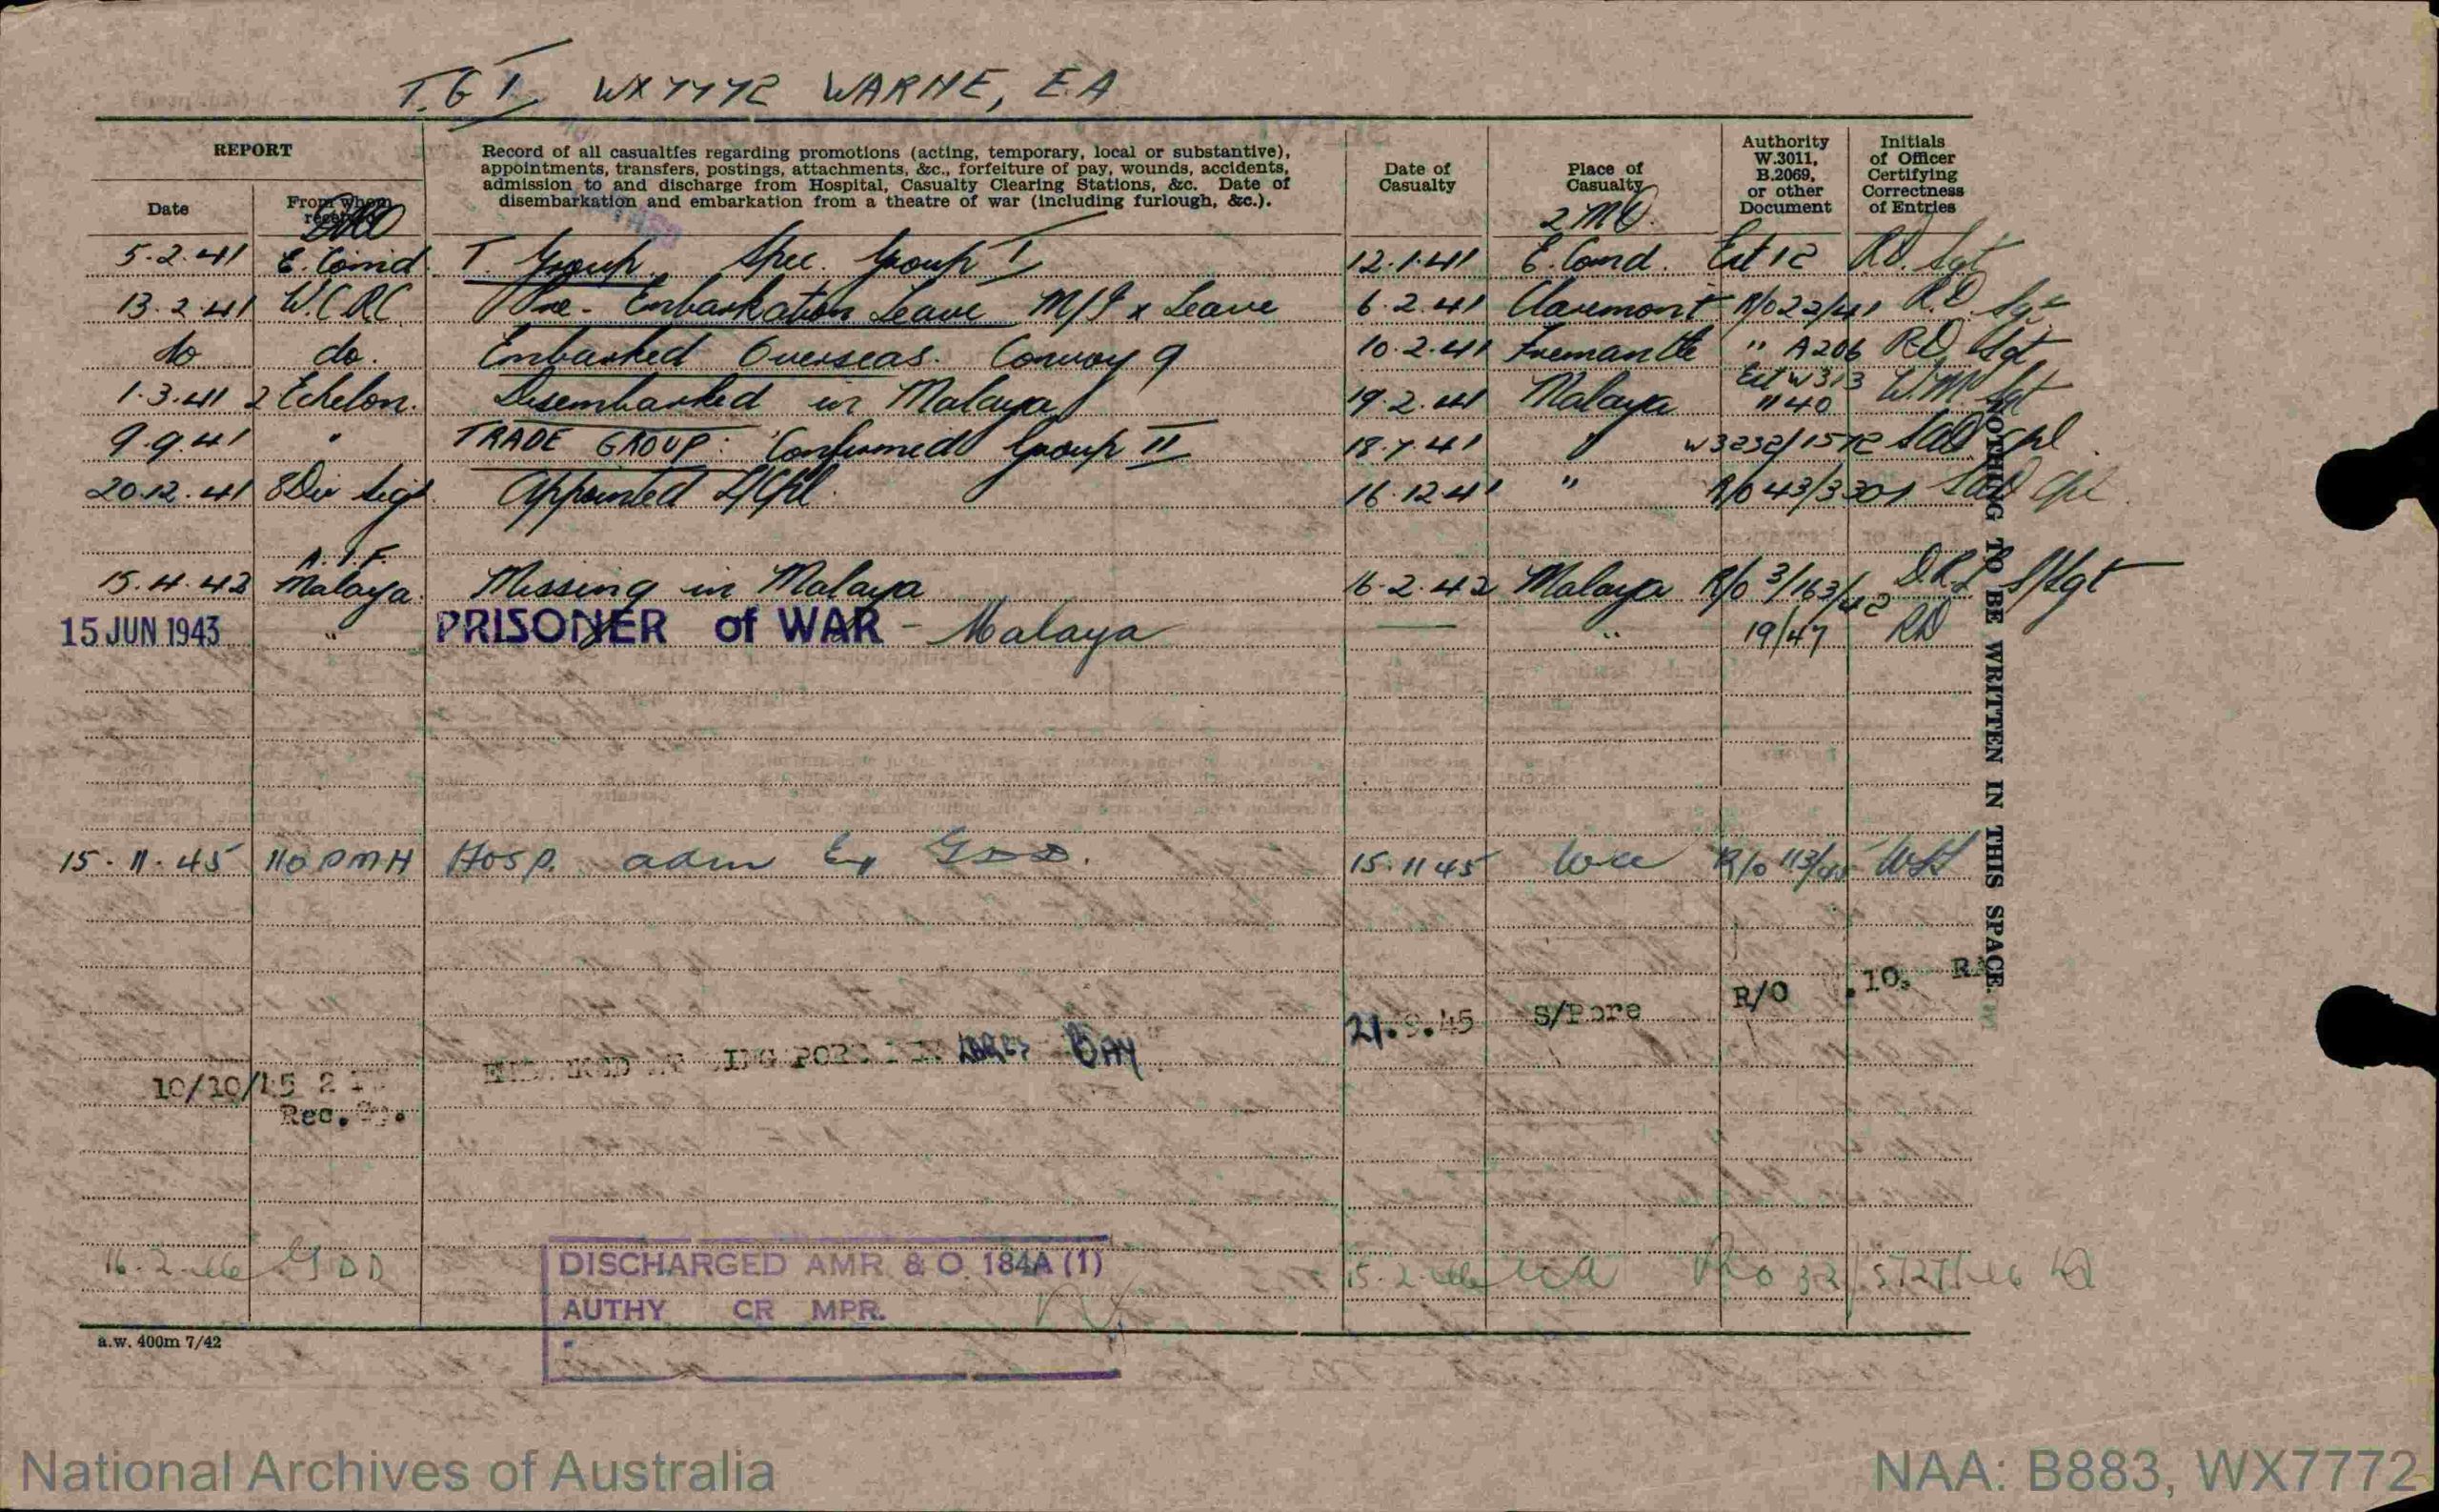 T.G I WX7772 WARNE, E.A
REPORT
Date
From whom received
Record of all casualties regarding promotions (acting, temporary, local or substantive),
appointments, transfers, postings, attachments, &c., forfeiture of pay, wounds, accidents,
admission to and discharge from Hospital, Casualty Clearing Stations, &c. Date of
disembarkation and embarkation from a theatre of war (including furlough, &c.).
Date of
Casualty
Place of
Casualty
Authority
W.3011,
B.2069,
or other
Document
Initials
of Officer
Certifying
Correctness
of Entries
5.2.41 E. Comd. T. Group. Spec. Group I 12.1.41 E. Comd. Ext 12 RD. Sgt
13.2.41 W.C.R.C. Pre-Embarkation Leave M/I x Leave 6.2.41 Claremont R/O 22/41 R.D. Sgt
do do. Embarked Overseas. Convoy 9 10.2.41 Fremantle " A206 RD Sgt
1.3.41 2 Echelon. Disembarked in Malaya 19.2.41 Malaya Ext W313 "40 W.M. Sgt
9.9.41 " TRADE GROUP: Confirmed Group II 18.7.41 " W3232/1572 Cpl.
20.12.41 8 Div Sigs. Appointed L/Cpl. 16.12.41 " R/O 43/3301 Cpl.
15.4.42 A.I.F. Malaya. Missing in Malaya 16.2.42 Malaya R/O 3/163/42 S/Sgt
15 JUN 1943 " PRISONER of WAR - Malaya — " 19/47 RD
NOTHING TO BE WRITTEN IN THIS SPACE.
15.11.45 110 PMH Hosp. adm Ex GDD. 15.11.45 R/O 113/45
21.9.45 S/Pore R/O 10.
LARGS BAY
10/10/45 2
Rec.
16.2.46 GDD DISCHARGED AMR & O 184A (1) 15.2.46
AUTHY CR MPR.
a.w. 400m 7/42
National Archives of Australia
NAA: B883, WX7772